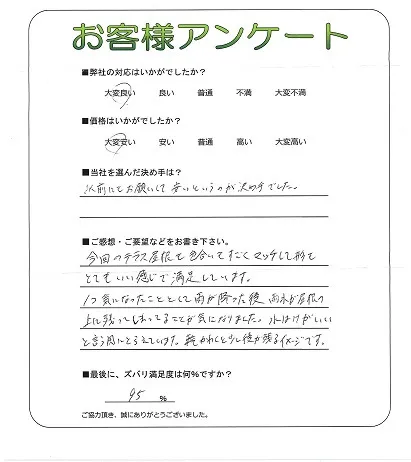 お客様アンケート
■弊社の対応はいかがでしたか？
大変良い 良い 普通 不満 大変不満
■価格はいかがでしたか？
大変安い 安い 普通 高い 大変高い
■当社を選んだ決め手は？
以前にもお願いして安いというのが決め手でした。
■ご感想・ご要望などをお書き下さい。
今回のテラス屋根も色合いすごくマッチして
とてもいい感じで満足しています。
1つ気になったこととして雨が降った後 雨水が屋根の
上に残ってしまってることが気になりました。水はけがいい
と言う間にとらえています。乾かわくと少し後が残るイメージです。
■最後に、ズバリ満足度は何%ですか？
95 %
ご協力頂き、誠にありがとうございました。